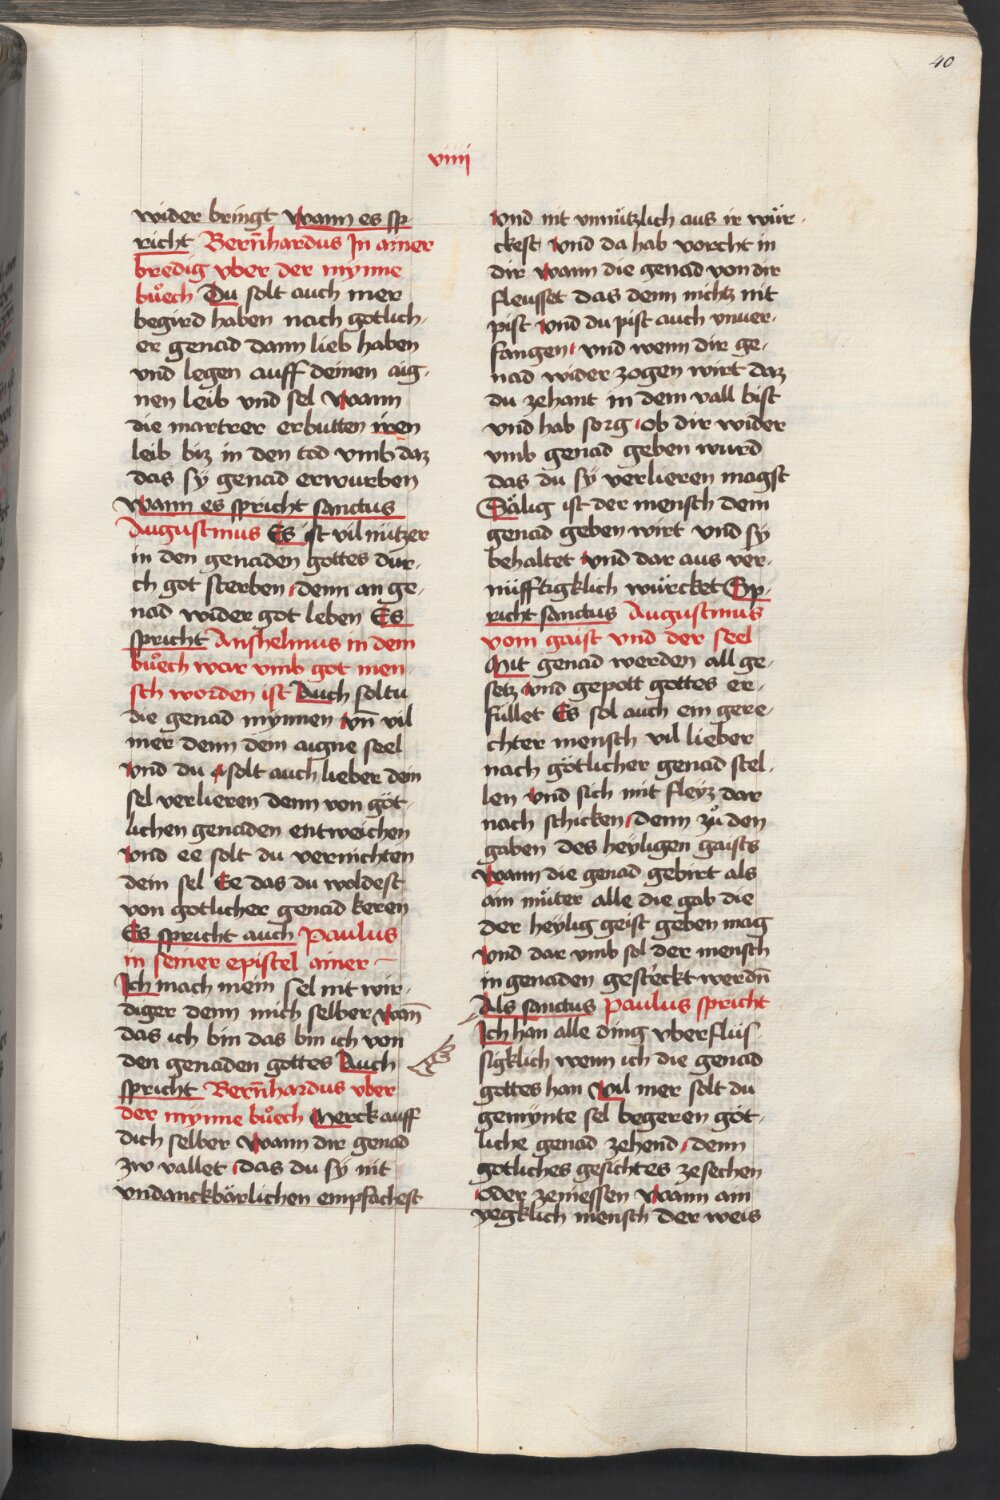 40
viiii
wider bringt Wann es sp
richt Bern̄hardus Jn ainer
bredig vber der mynne
bůech Du solt auch mer
begird haben nach gotlich-
er genad dann lieb haben
vnd legen auff deinen aig-
nen leib vnd sel Wann
die martrer erbutten iren
leib biz in den tod vmb daz
das sÿ genad erwurben
Wann es spricht sanctus
Augustinus Es ist vil nützer
in den genaden gottes dur-
ch got sterben denn an ge-
nad wider got leben Es
spricht Anshelmus in dem
bůech war vmb got men
sch worden ist Auch soltu
die genad mynnen vn̄ vil
mer denn dem aigne seel
Vnd du solt auch lieber dein
sel verlieren denn von göt-
lichen genaden entweichen
Vnd ee solt du vernichten
dein sel Ee das du woldest
von gotlicher genad keren
Es spricht auch Paulus
in seiner epistel ainer
Ich mach mein sel nit wir-
diger denn mich selber Wan̄
das ich bin das bin ich von
den genaden gottes Auch
spricht Bern̄hardus vber
der mynne bůech Merck auff
dich selber Wann dir genad
zw vallet das du sÿ nit
vndanckbärlichen empfachest
Vnd nit vnnützlich aus ir wür-
ckest Vnd da hab vorcht in
dir Wann die genad von dir
fleusset das denn nichtz nit
pist Vnd du pist auch vnuer-
fangen vnd wenn dir ge-
nad wider zogen wirt daz
du zehant in dem vall bist
vnd hab sorg ob dir wider
vmb genad geben wurd
das du sÿ verlieren magst
Sälig ist der mensch dem
genad geben wirt vnd sÿ
behaltet Vnd dar aus ver-
nüfftigklich würcket Sp-
richt sanctus Augustinus
vom gaist vnd der seel
Mit genad werden all ge-
setz Vnd gepott gottes er-
füllet Es sol auch ein gere-
chter mensch vil lieber
nach götlicher genad stel-
len Vnd sich mit fleÿz dar
nach schicken denn zů den
gaben des heÿligen gaists
Wann die genad gebirt als
ain můter alle die gab die
der heÿlig geist geben mag
Vnd dar vmb sol der mensch
in genaden gesteckt werdn̄
Als sanctus Paulus spricht
Ich han alle ding vberflüs-
sigklich wenn ich die genad
gottes han Vil mer solt du
gemÿnte sel begeren göt-
liche genad zehend denn
gotliches gesichtes zesechen
Oder zeniessen Wann ain
yegklich mensch der weis